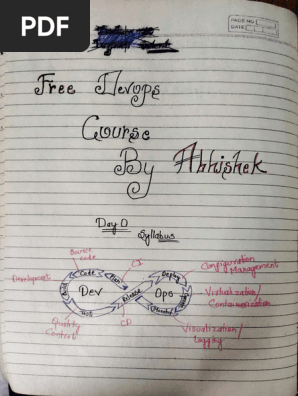 PDF
PAGE NO.
DATE
Free Devops
Course
By Abhishek
Day 0
Syllabus
Source code
Development
Quality Control
CI
CD
Code
Plan
Build
Test
Release
Deploy
Dev
Ops
Configuration Management
Virtualization/ Containerization
Visualization/ Logging